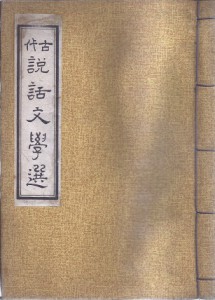 古代
説話文學選